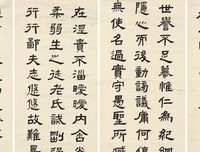 世譽不足慕惟仁為紀綱
隱心而後動謗議庸何傷
無使名過實守愚聖所臧
在涅貴不淄曖曖內含光
柔弱生之徒老氏誡剛強
行行鄙夫志悠悠故難量